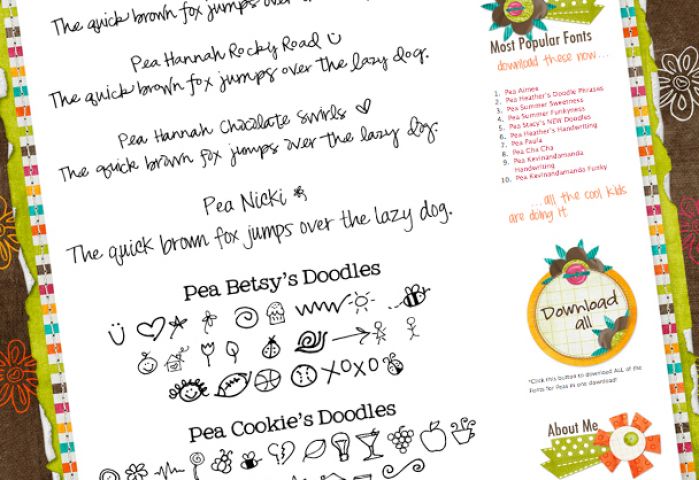 The quick brown fox jumps over the lazy dog.
Pea Hannah Rocky Road
The quick brown fox jumps over the lazy dog.
Pea Hannah Chocolate Swirls
The quick brown fox jumps over the lazy dog.
Pea Nicki
The quick brown fox jumps over the lazy dog.
Pea Betsy's Doodles
XOXO
Pea Cookie's Doodles
Most Popular Fonts
download these now...
1. Pea Aimee
2. Pea Heather's Doodle Phrases
3. Pea Summer Sweetness
4. Pea Summer Funkyness
5. Pea Stacy's NEW Doodles
6. Pea Heather's Handwriting
7. Pea Paula
8. Pea Cha Cha
9. Pea Kevinandamanda
Handwriting
10. Pea Kevinandamanda Funky
...all the cool kids
are doing it
Download
all
*Click this button to download ALL of the
Fonts for Peas in one download!
About Me